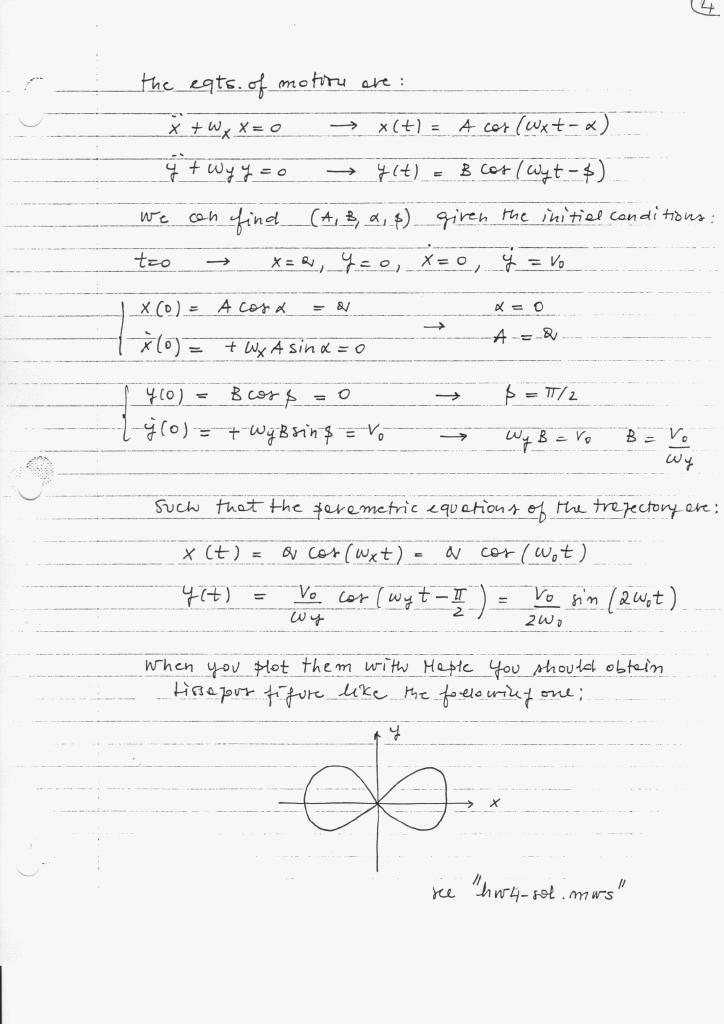 4
the eqts. of motion are :
ẍ + ωx x = 0 → x(t) = A cos (ωxt - α)
ÿ + ωy y = 0 → y(t) = B cos (ωyt - β)
we can find (A, B, α, β) given the initial conditions :
t=0 → x = a, y = 0, ẋ = 0, ẏ = v₀
x(0) = A cos α = a → α = 0
ẋ(0) = + ωx A sin α = 0 A = a
y(0) = B cos β = 0 → β = π/2
ẏ(0) = + ωy B sin β = v₀ → ωy B = v₀ B = v₀/ωy
Such that the parametric equations of the trajectory are :
x (t) = a cos (ωxt) = a cos (ω₀t)
y(t) = v₀/ωy cos (ωyt - π/2) = v₀/2ω₀ sin (2ω₀t)
when you plot them with Maple you should obtain
Lissajour figure like the following one ;
y
x
see "hw4-sol.mws"